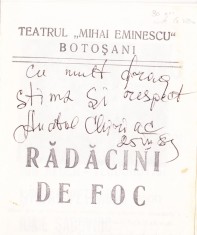 TEATRUL „MIHAI EMINESCU"
BOTOȘANI
cu mult drag
stimă și respect
Chiriac
RĂDĂCINI
DE FOC